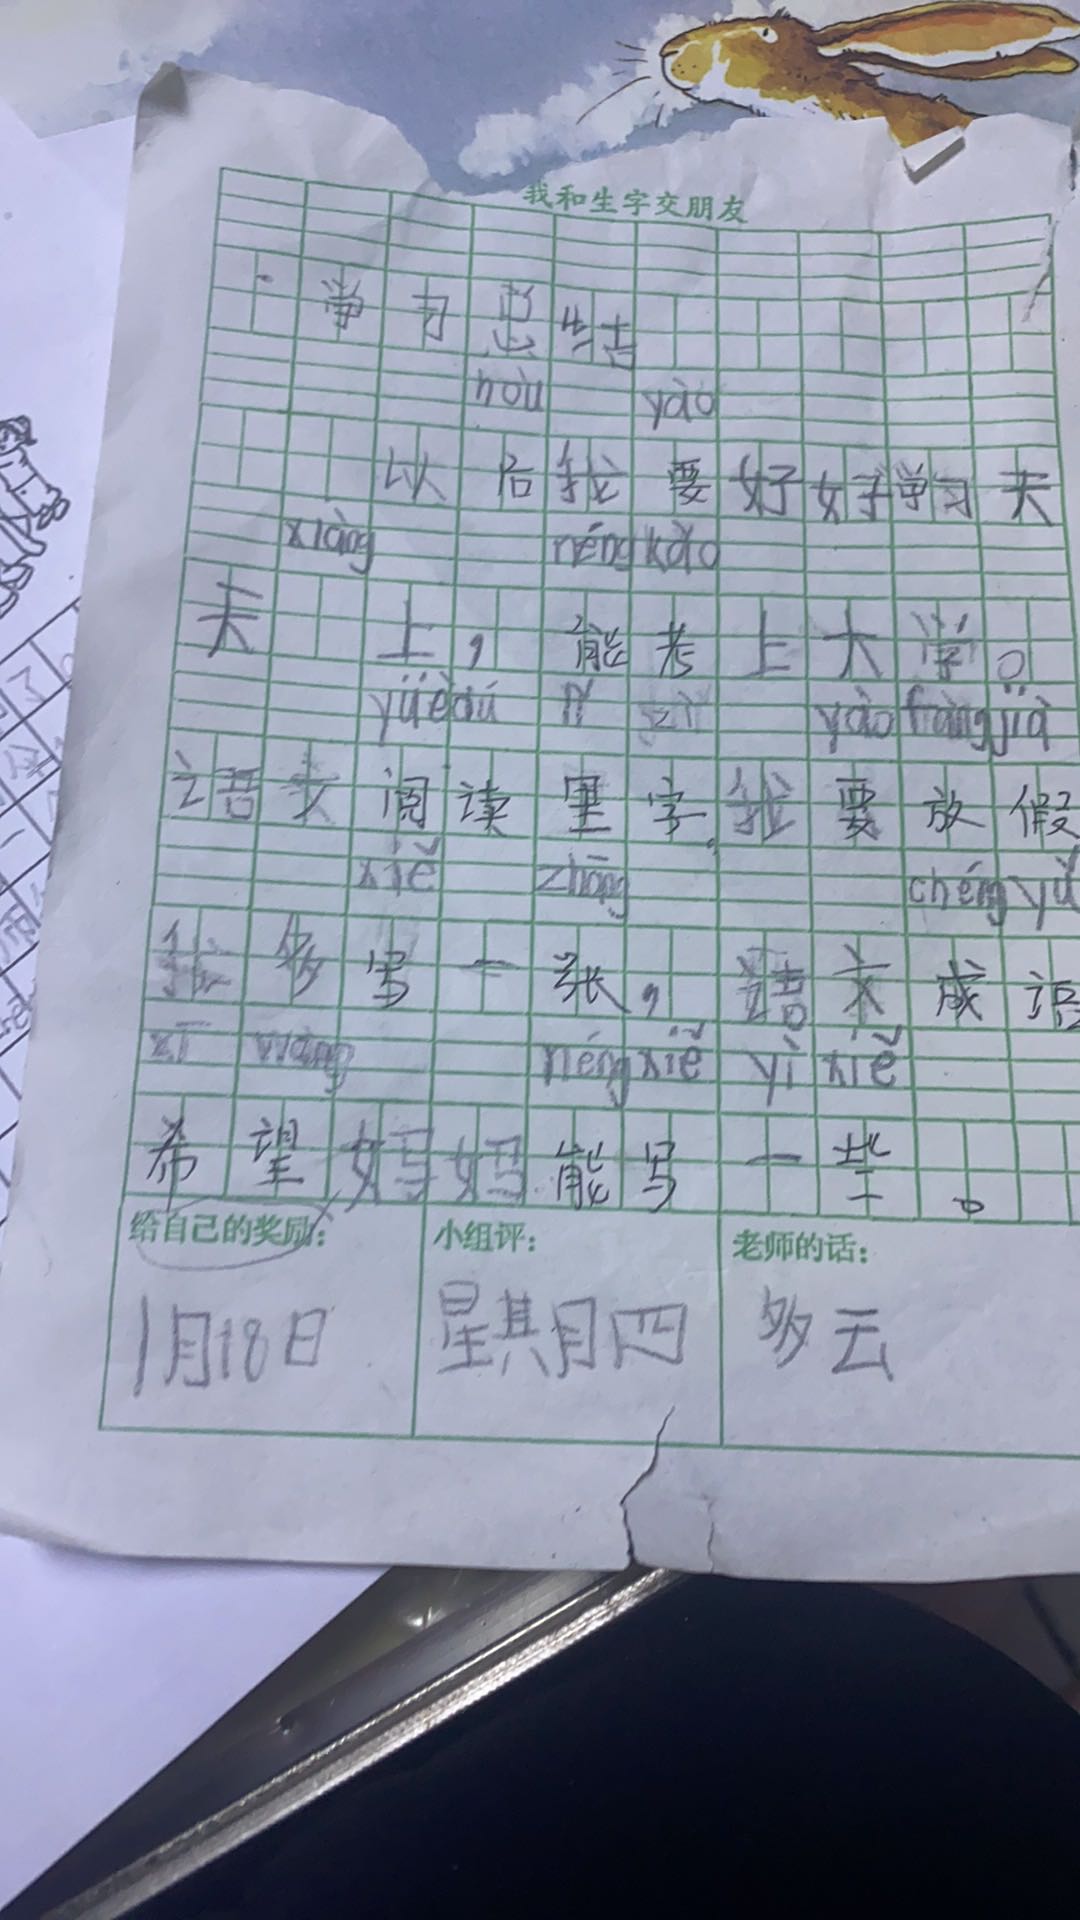 我和生字交朋友
学习总结
hòu yào
以后我要好好学习天
xiàng néng kǎo
天 上，能考上大学。
yüè dú lǐ zì yào fàng jià
语文阅读里字，我要放假
xiě zhāng chéng yǔ
我多写一张，语文成语
xī wàng néng xiě yì xiē
希望妈妈能写一些。
给自己的奖励： 小组评： 老师的话：
1月18日 星期四 多云